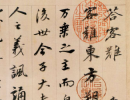 答客難
客難東方朔
萬乘之主而
後世今子大夫
人之義諷誦